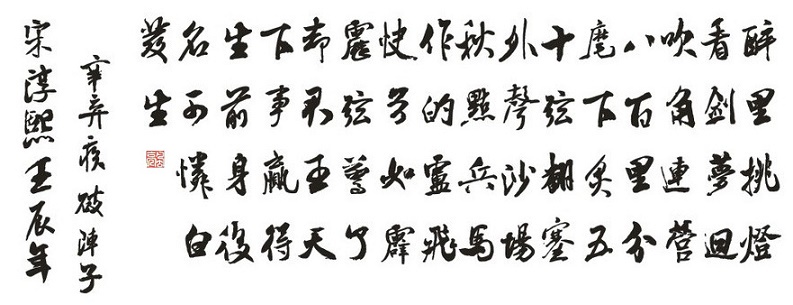 醉里挑燈
看劍夢迴
吹角連營
八百里分
麾下炙五
十弦翻塞
外聲沙場
秋點兵馬
作的盧飛
快弓如霹
靂弦驚了
却君王天
下事贏得
生前身後
名可憐白
發生
辛弃疾破陣子
宋淳熙壬辰年